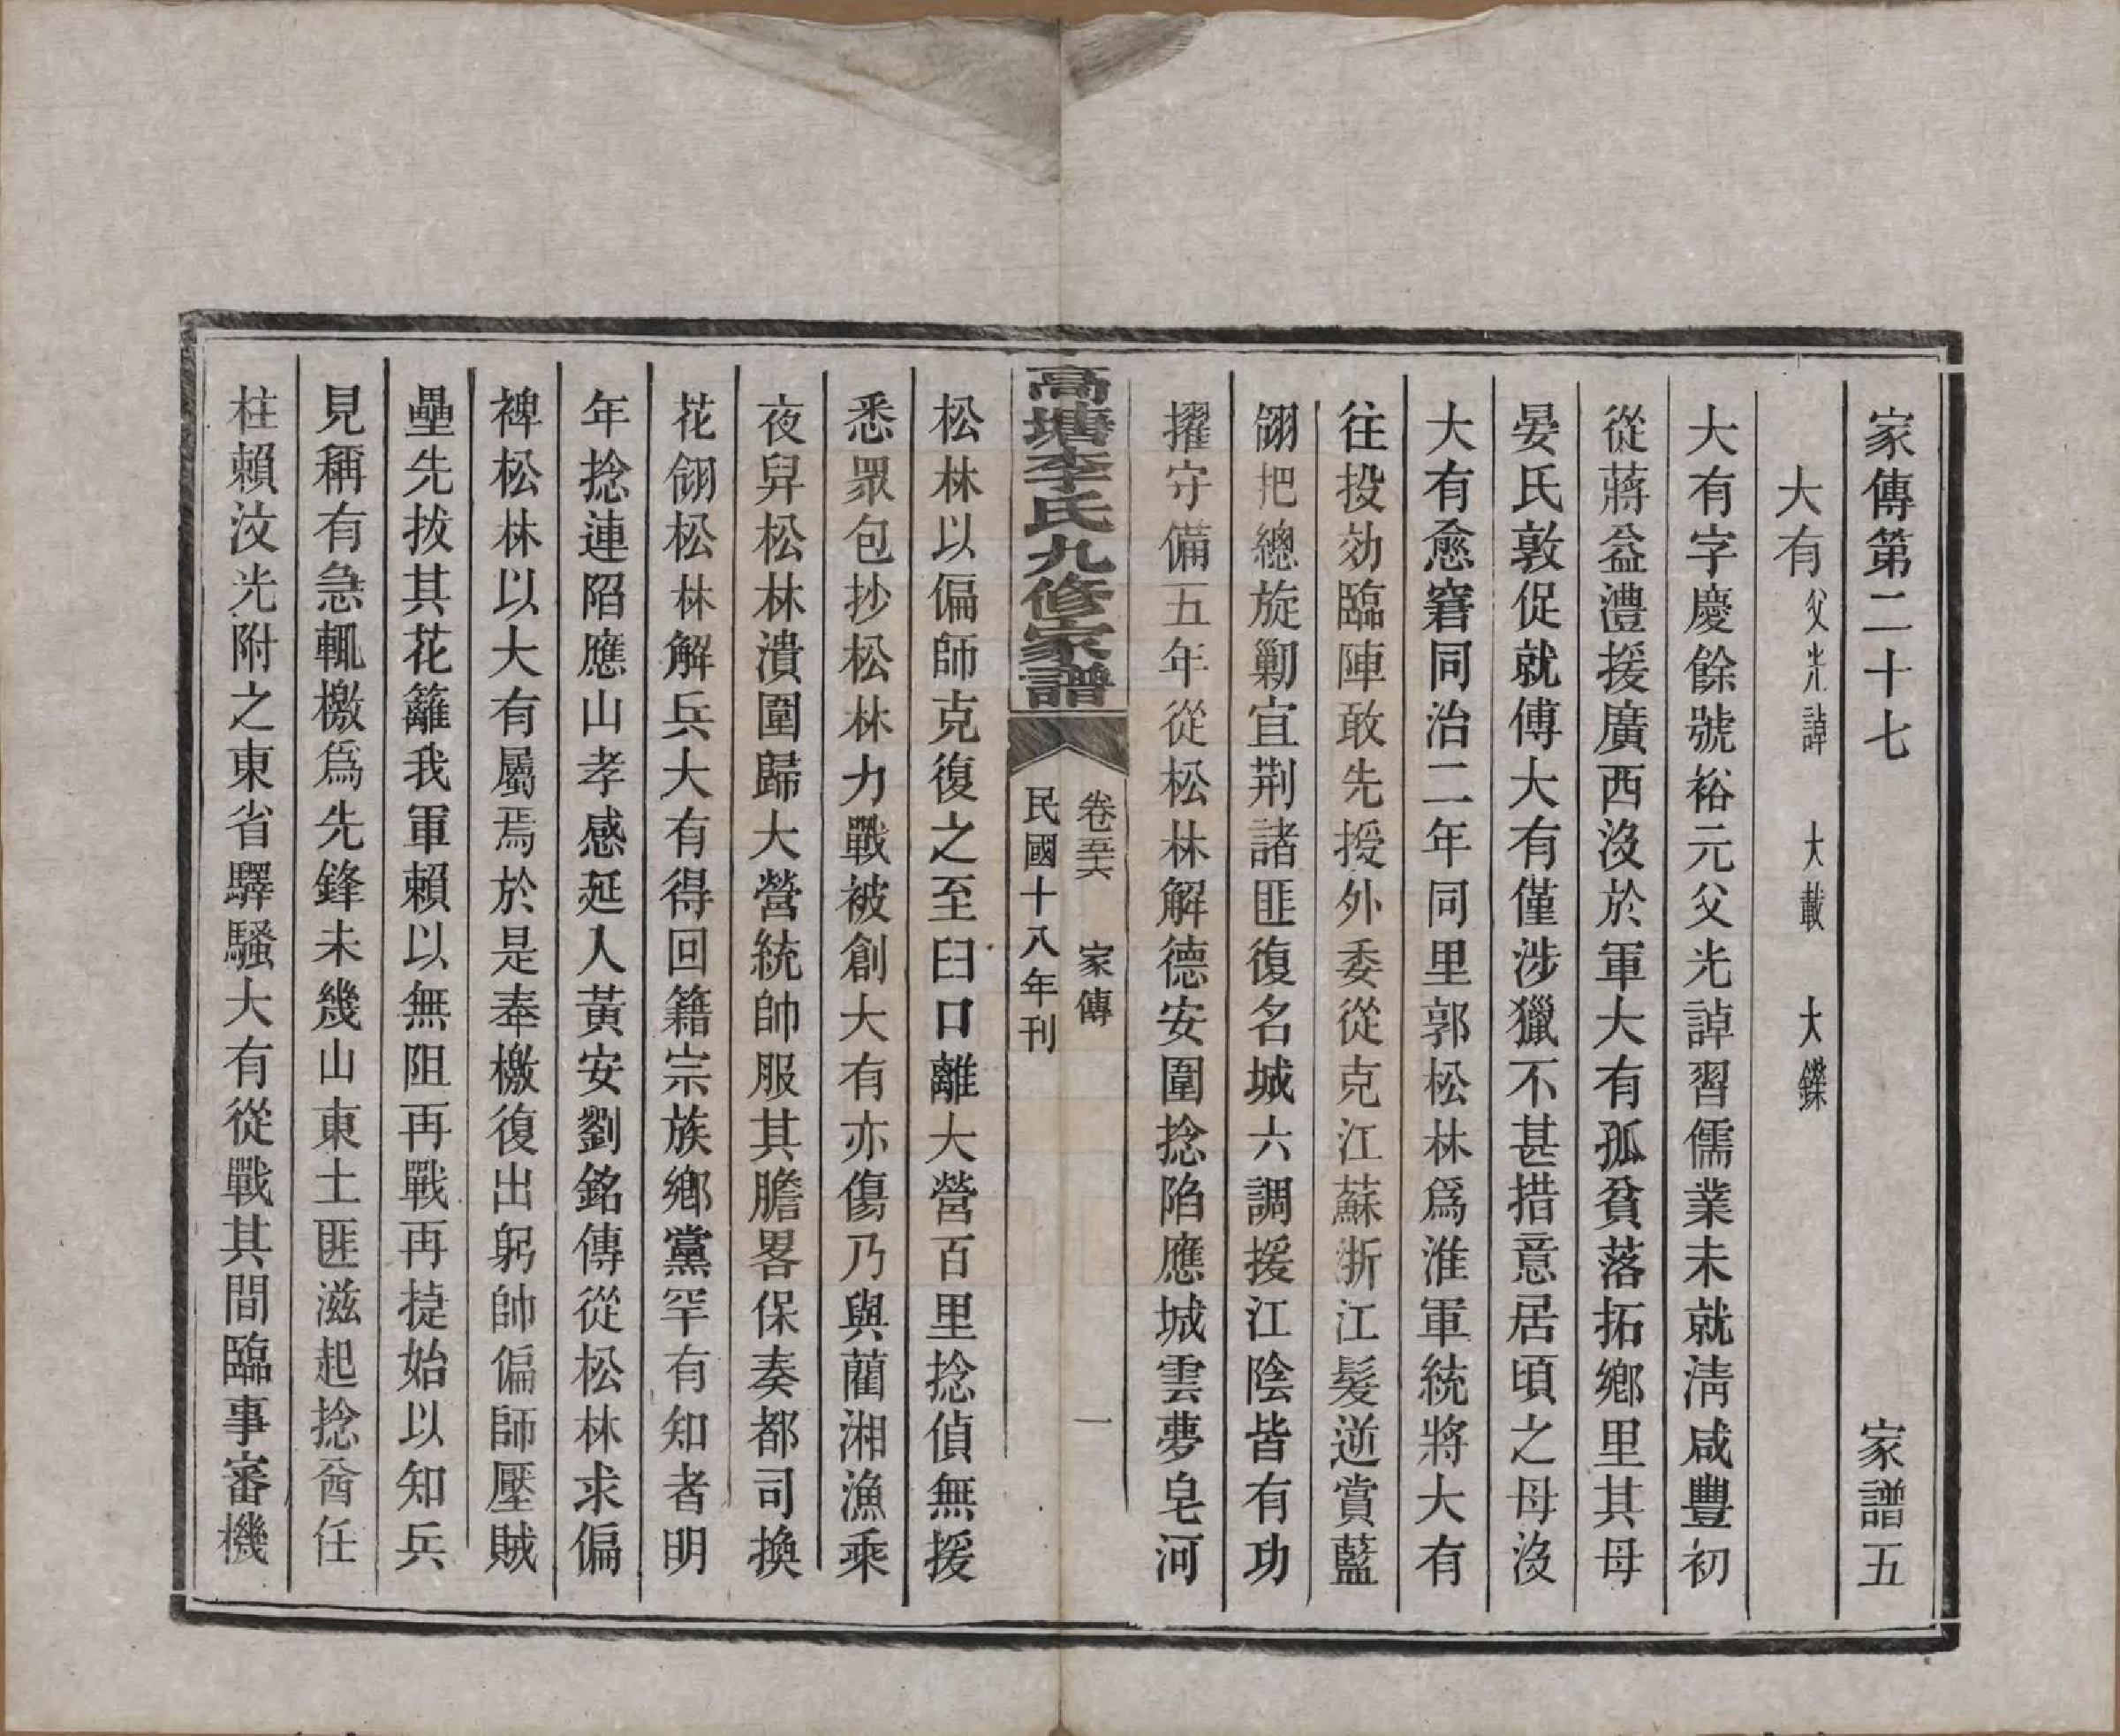 家傳第二十七 家譜五
大有父光諄 大載 大鏷
大有字慶餘號裕元父光諄習儒業未就淸咸豐初
從蔣益澧援廣西沒於軍大有孤貧落拓鄉里其母
晏氏敦促就傅大有僅涉獵不甚措意居頃之母沒
大有愈窘同治二年同里郭松林爲淮軍統將大有
往投効臨陣敢先授外委從克江蘇浙江髮逆賞藍
翎把總旋勦宜荆諸匪復名城六調援江陰皆有功
擢守備五年從松林解德安圍捻陷應城雲夢皂河
高塘李氏九修家譜 卷五六 家傳 一
民國十八年刊
松林以偏師克復之至臼口離大營百里捻偵無援
悉眾包抄松林力戰被創大有亦傷乃與藺湘漁乘
夜舁松林潰圍歸大營統帥服其膽畧保奏都司換
花翎松林解兵大有得回籍宗族鄉黨罕有知者明
年捻連陷應山孝感延入黃安劉銘傳從松林求偏
裨松林以大有屬焉於是奉檄復出躬帥偏師壓賊
壘先拔其花籬我軍賴以無阻再戰再捷始以知兵
見稱有急輒檄爲先鋒未幾山東土匪滋起捻酋任
柱賴汶光附之東省驛騷大有從戰其間臨事審機